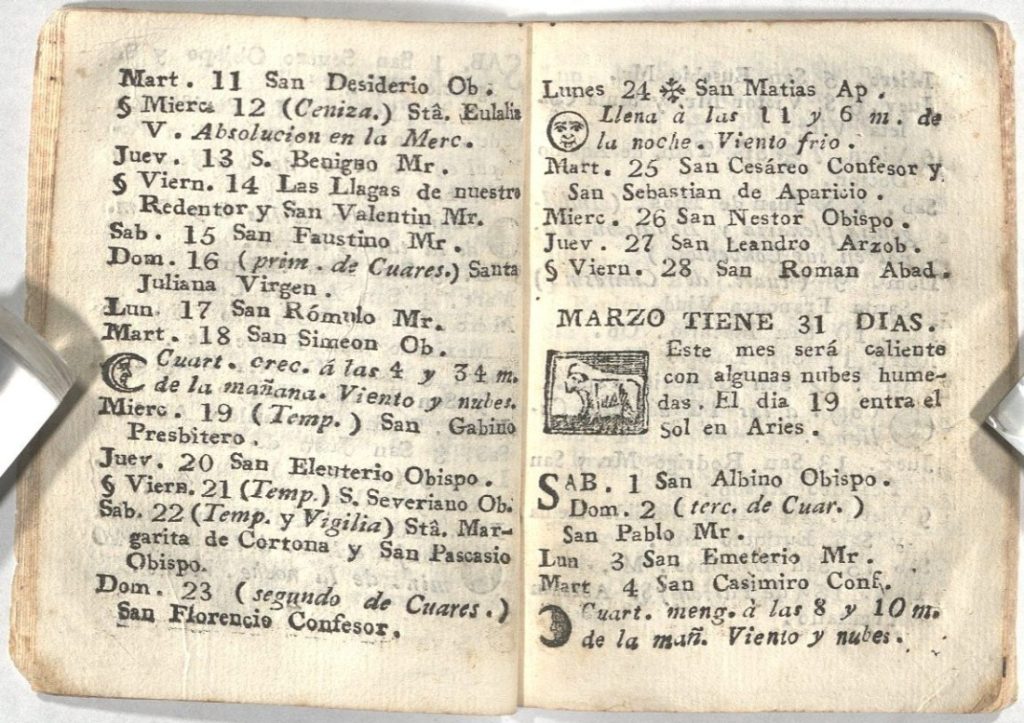 Mart. 11 San Desiderio Ob.
§ Mierc. 12 (Ceniza.) Stâ. Eulalia
V. Absolucion en la Merc.
Juev. 13 S. Benigno Mr.
§ Viern. 14 Las Llagas de nuestro
Redentor y San Valentin Mr.
Sab. 15 San Faustino Mr.
Dom. 16 (prim. de Cuares.) Santa
Juliana Virgen.
Lun. 17 San Rómulo Mr.
Mart. 18 San Simeon Ob.
Cuart. crec. á las 4 y 34 m.
de la mañana. Viento y nubes.
Mierc. 19 (Temp.) San Gabino
Presbitero.
Juev. 20 San Eleuterio Obispo.
§ Viern. 21 (Temp.) S. Severiano Ob.
Sab. 22 (Temp. y Vigilia) Stâ. Mar-
garita de Cortona y San Pascasio
Obispo.
Dom. 23 (segundo de Cuares.)
San Florencio Confesor.
Lunes 24 ✠ San Matias Ap.
Llena à las 11 y 6 m. de
la noche. Viento frio.
Mart. 25 San Cesáreo Confesor y
San Sebastian de Aparicio.
Mierc. 26 San Nestor Obispo.
Juev. 27 San Leandro Arzob.
§ Viern. 28 San Roman Abad.
MARZO TIENE 31 DIAS.
Este mes será caliente
con algunas nubes hume-
das. El dia 19 entra el
Sol en Aries.
SAB. 1 San Albino Obispo.
Dom. 2 (terc. de Cuar.)
San Pablo Mr.
Lun 3 San Emeterio Mr.
Mart 4 San Casimiro Conf.
Cuart. meng. à las 8 y 10 m.
de la mañ. Viento y nubes.